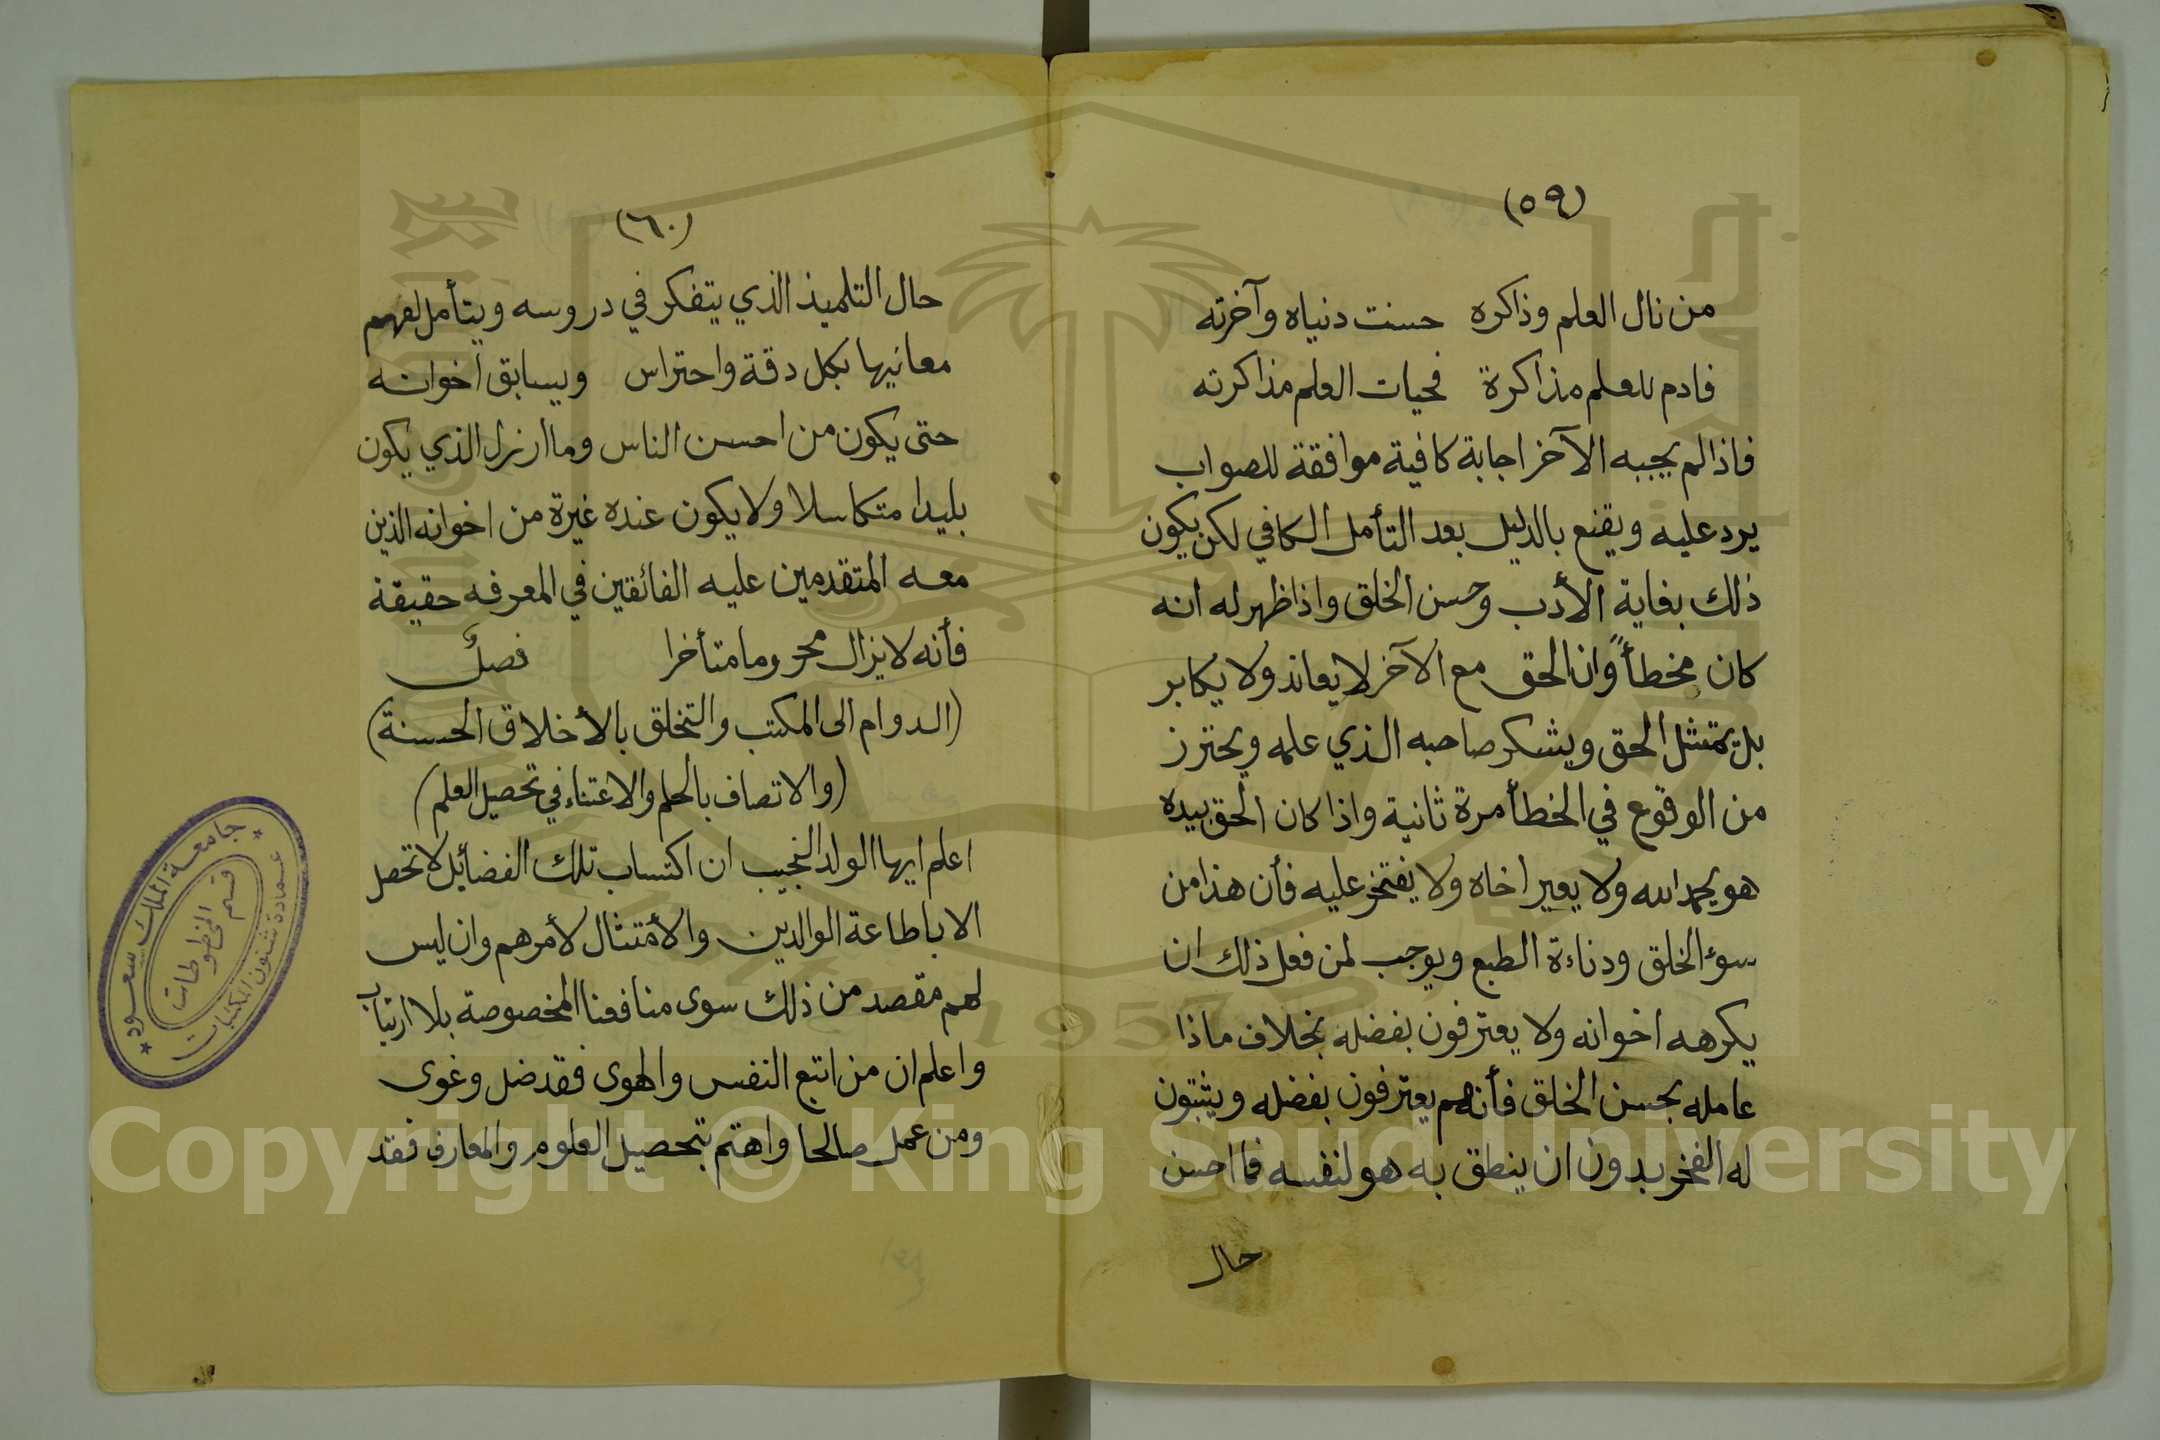 (٥٩)
من نال العلم وذاكره حسنت دنياه وآخرته
فادم للعلم مذاكرة فحيات العلم مذاكرته
فاذا لم يجبه الآخر اجابة كافية موافقة للصواب
يرد عليه ويقنع بالدليل بعد التأمل الكافي لكن يكون
ذلك بغاية الأدب وحسن الخلق واذا ظهر له انه
كان مخطأً وان الحق مع الآخر لا يعاند ولا يكابر
بل يمتثل الحق ويشكر صاحبه الذي علمه ويحترز
من الوقوع في الخطأ مرة ثانية واذا كان الحق بيده
هو يحمد الله ولا يعير اخاه ولا يفتخر عليه فأن هذا من
سوء الخلق ودناءة الطبع ويوجب لمن فعل ذلك ان
يكرهه اخوانه ولا يعترفون بفضله بخلاف ماذا
عامله بحسن الخلق فأنهم يعترفون بفضله ويثبتون
له الفخر بدون ان ينطق به هو لنفسه فما احسن
حال
(٦٠)
حال التلميذ الذي يتفكر في دروسه ويتأمل لفهم
معانيها بكل دقة واحتراس ويسابق اخوانه
حتى يكون من احسن الناس وما ارذل الذي يكون
بليدا متكاسلا ولا يكون عنده غيرة من اخوانه الذين
معه المتقدمين عليه الفائقين في المعرفه حقيقة
فأنه لا يزال محروما متأخرا فصلٌ
(الدوام الى المكتب والتخلق بالأخلاق الحسنة)
(والاتصاف بالحلم والاعتناء في تحصيل العلم)
اعلم ايها الولد النجيب ان اكتساب تلك الفضائل لا تحصل
الا باطاعة الوالدين والأمتثال لأمرهم وان ليس
لهم مقصد من ذلك سوى منافعنا المخصوصة بلا ارتياب
واعلم ان من اتبع النفس والهوى فقد ضل وغوى
ومن عمل صالحا واهتم بتحصيل العلوم والمعارف فقد
جامعة الملك سعود
قسم المخطوطات
عمادة شئون المكتبات
1957
Copyright © King Saud University